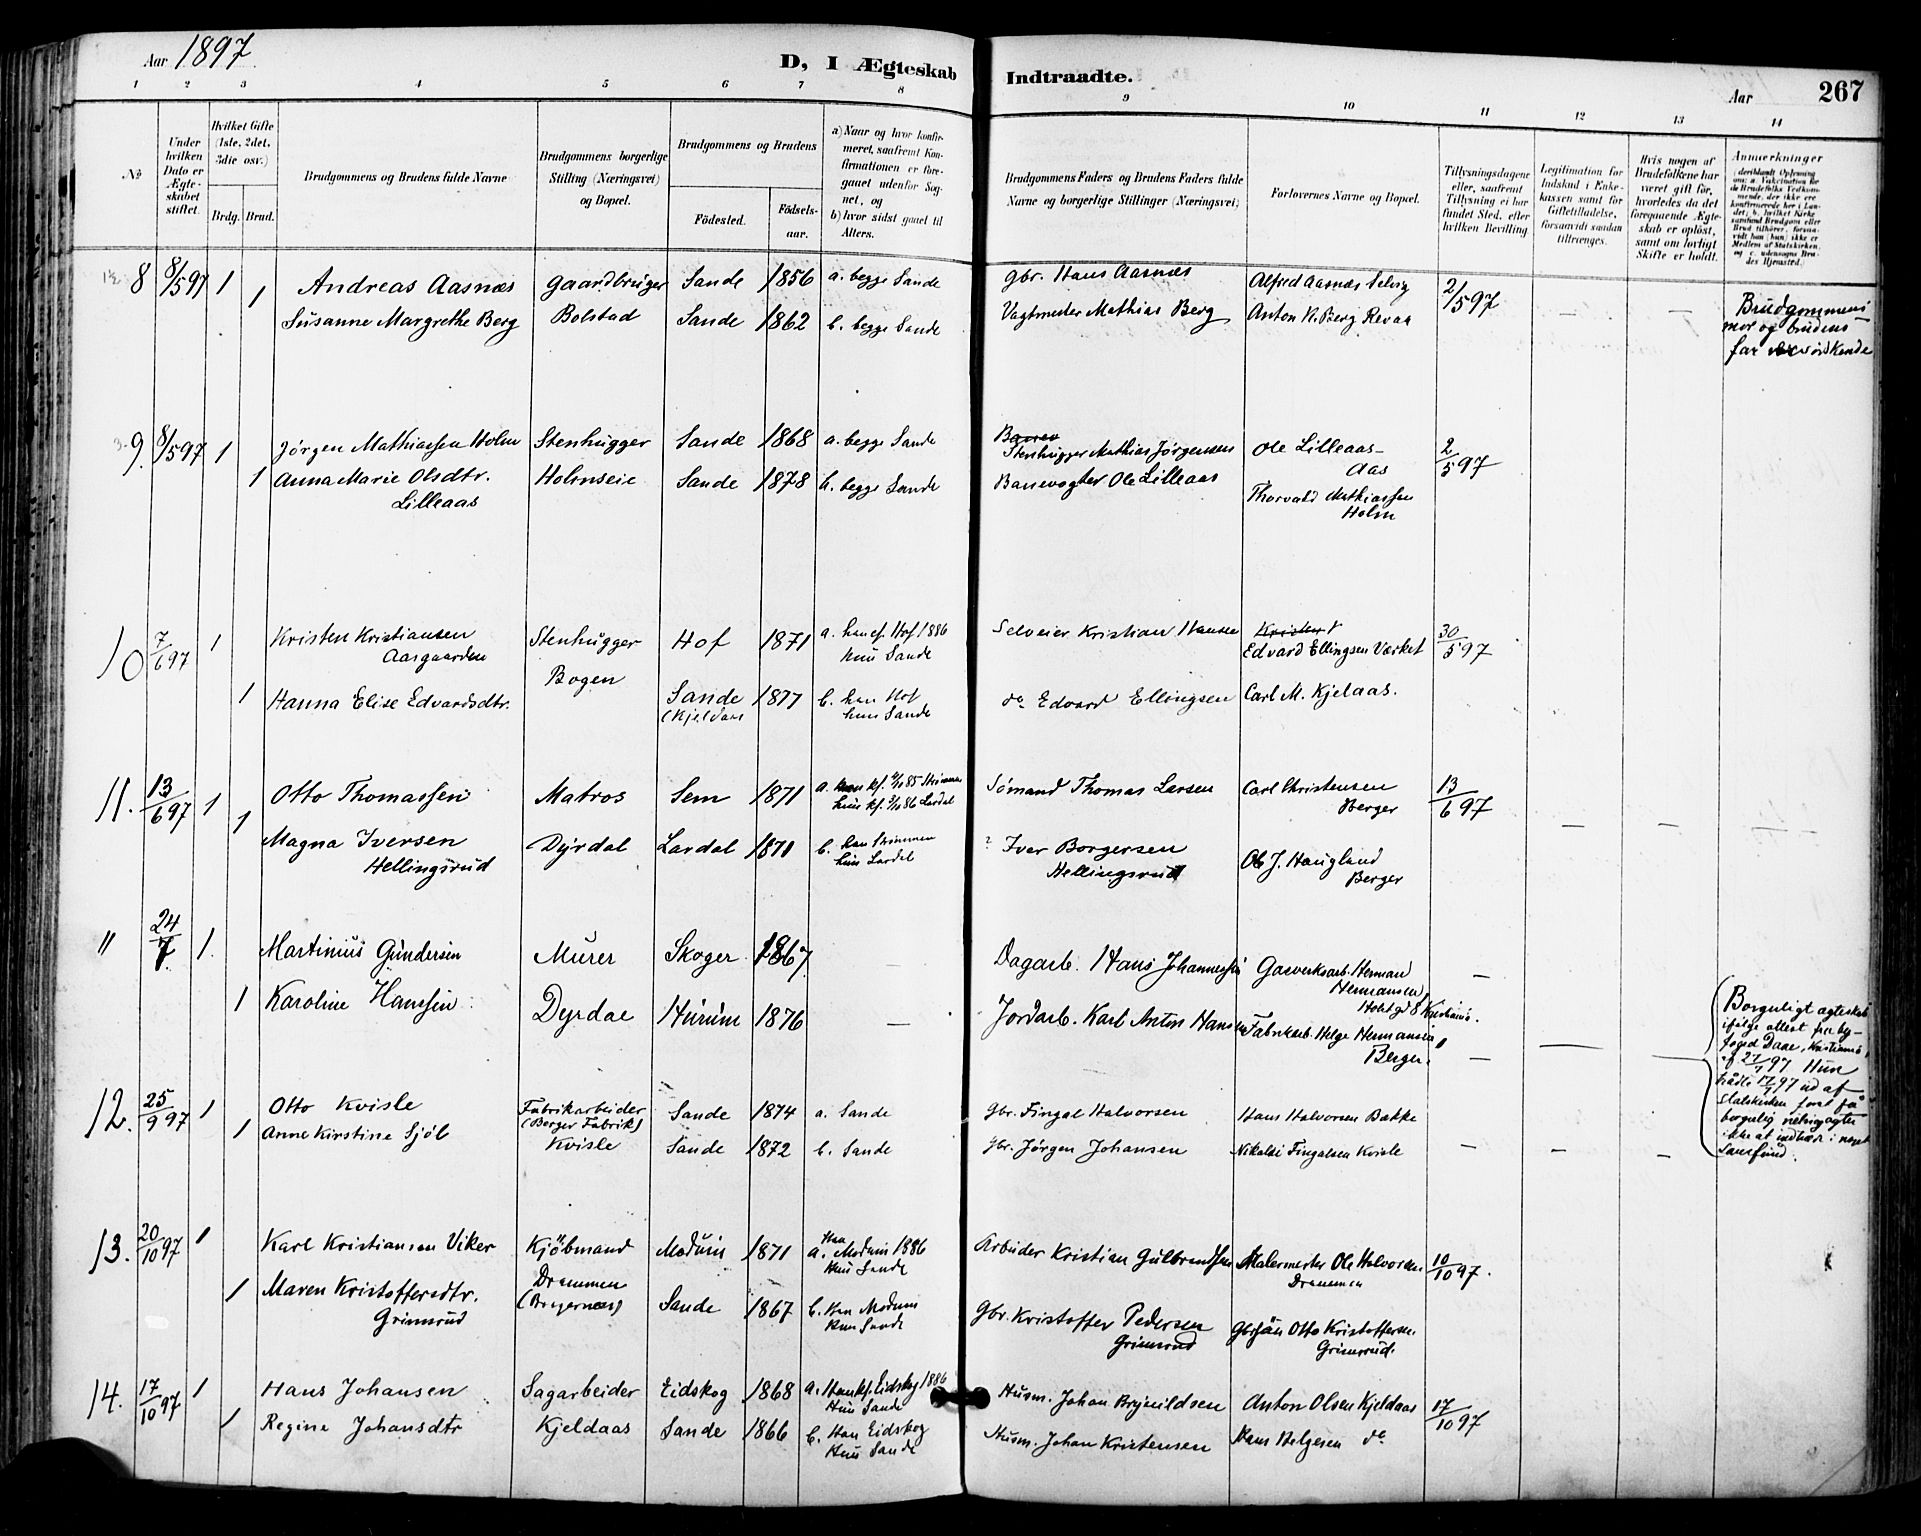 Aar 1897.
D, I Ægteskab Indtraadte.
Aar 267
1 2 3 4 5 6 7 8 9 10 11 12 13 14
No
Under hvilken Dato er Ægteskabet stiftet.
Hvilket Gifte (1ste, 2det, 3die osv.)
Brdg. Brud.
Brudgommens og Brudens fulde Navne
Brudgommens borgerlige Stilling (Næringsvei) og Bopæl.
Brudgommens og Brudens
Födested. Födselsaar.
a) Naar og hvor konfirmeret, saafremt Konfirmationen er foregaaet udenfor Sognet, og
b) hvor sidst gaaet til Alters.
Brudgommens Faders og Brudens Faders fulde Navne og borgerlige Stillinger (Næringsvei)
Forlovernes Navne og Bopæl.
Tillysningsdagene eller, saafremt Tillysning ei har fundet Sted, efter hvilken Bevilling
Legitimation for Indskud i Enkekassen samt for Giftetilladelse, forsaavidt saadan tiltrænges.
Hvis nogen af Brudefolkene har været gift før, hvorledes da det foregaaende Ægteskab er oplöst, samt om lovligt Skifte er holdt.
Anmærkninger
8 8/5 97 1 Andreas Aasnæs Gaardbruger Sande 1856 a. begge Sande Gbr. Hans Aasnæs Alfred Aasnæs Selvig 2/5 97
1 Susanne Margrethe Berg Bolstad Sande 1862 b. begge Sande Vagtmester Mathias Berg Anton N. Berg Revaa
Brudgommens
mor og brudens
far søskende
9. 8/5 97 1 Jørgen Mathiassen Holm Stenhugger Sande 1868 a. begge Sande Stenhugger Mathias Jørgensen Ole Lilleaas 2/5 97
Aas
1 Anna Marie Olsdtr. Holmseie Sande 1878 b. begge Sande Banevogter Ole Lilleaas Thorvald Mathiassen
Lilleaas Holm
10 7/6 97 1 Kristen Kristiansen Stenhugger Hof 1871 a. han cf. Hof 1886 Selveier Kristian Hansen Edvard Ellingsen Værket 30/5 97
Aasgaarden hun Sande
Bogen
1 Hanna Elise Edvardsdtr. Sande 1877 b. han Hof do. Edvard Ellingsen Carl M. Kjelaas.
(Kjeldaas hun Sande
11. 13/6 97 1 Otto Thomassen Matros Sem 1871 a. han kf. 85 Strømmen Sømand Thomas Larsen Carl Christensen 13/6 97
hun kf. 86 Lardal Berger
1 Magna Iversen Dyrdal Lardal 1871 b. han Strømmen Iver Borgersen Ole J. Haugland
Hellingsrud hun Lardal Hellingsrud Berger
" 24/7. 1. Martinius Gundersen Murer Skoger 1867. Dagarb. Hans Johannessen Gasverksarb. Herman
Hermansen,
Holstgd 8 Kristiania.
1 Karoline Hanssen Dyrdal Hurum 1876 Jordarb. Karl Anton Hansen Fabrikarb. Helge Hermansen,
Berger.
Borgerligt ægteskab
ifølge attest fra by-
foged Daae, Kristiania,
af 27/7 97 Hun
trådte 17/7 97 ud af
statskirken for at få
borgerlig vielse, agter
ikke at indtræde i noget
Samfund.
12. 25/9 97 1 Otto Kvisle Fabrikarbeider Sande 1874 a. Sande Gbr. Fingal Halvorsen Hans Halvorsen Bakke
(Berger Fabrik)
1 Anne Kirstine Sjøl Kvisle Sande 1872 b. Sande Gbr. Jørgen Johansen Nikolai Fingalsen Kvisle
13. 20/10 97 1 Karl Kristiansen Viker Kjøbmand Modum 1871 a. Han Modum 1886 Arbeider Kristian Gulbrandsen Malermester Ole Halvorsen 10/10 97.
Hun Sande Drammen
1 Maren Kristoffersdtr. Drammen Sande 1867 b. Han Modum Gbr. Kristoffer Pedersen Gbrsøn Otto Kristoffersen
Grimsrud (Bragernæs) Hun Sande Grimsrud Grimsrud.
14. 17/10 97 1 Hans Johansen Sagarbeider Eidskog 1868 a. Han kf. Eidskog 1886 Husm. Johan Brynildsen Anton Olsen Kjeldaas 17/10 97
Hun Sande
1 Regine Johansdtr Kjeldaas Sande 1866 b. Han Eidskog Husm. Johan Kristensen Hans Helgesen do
Hun Sande